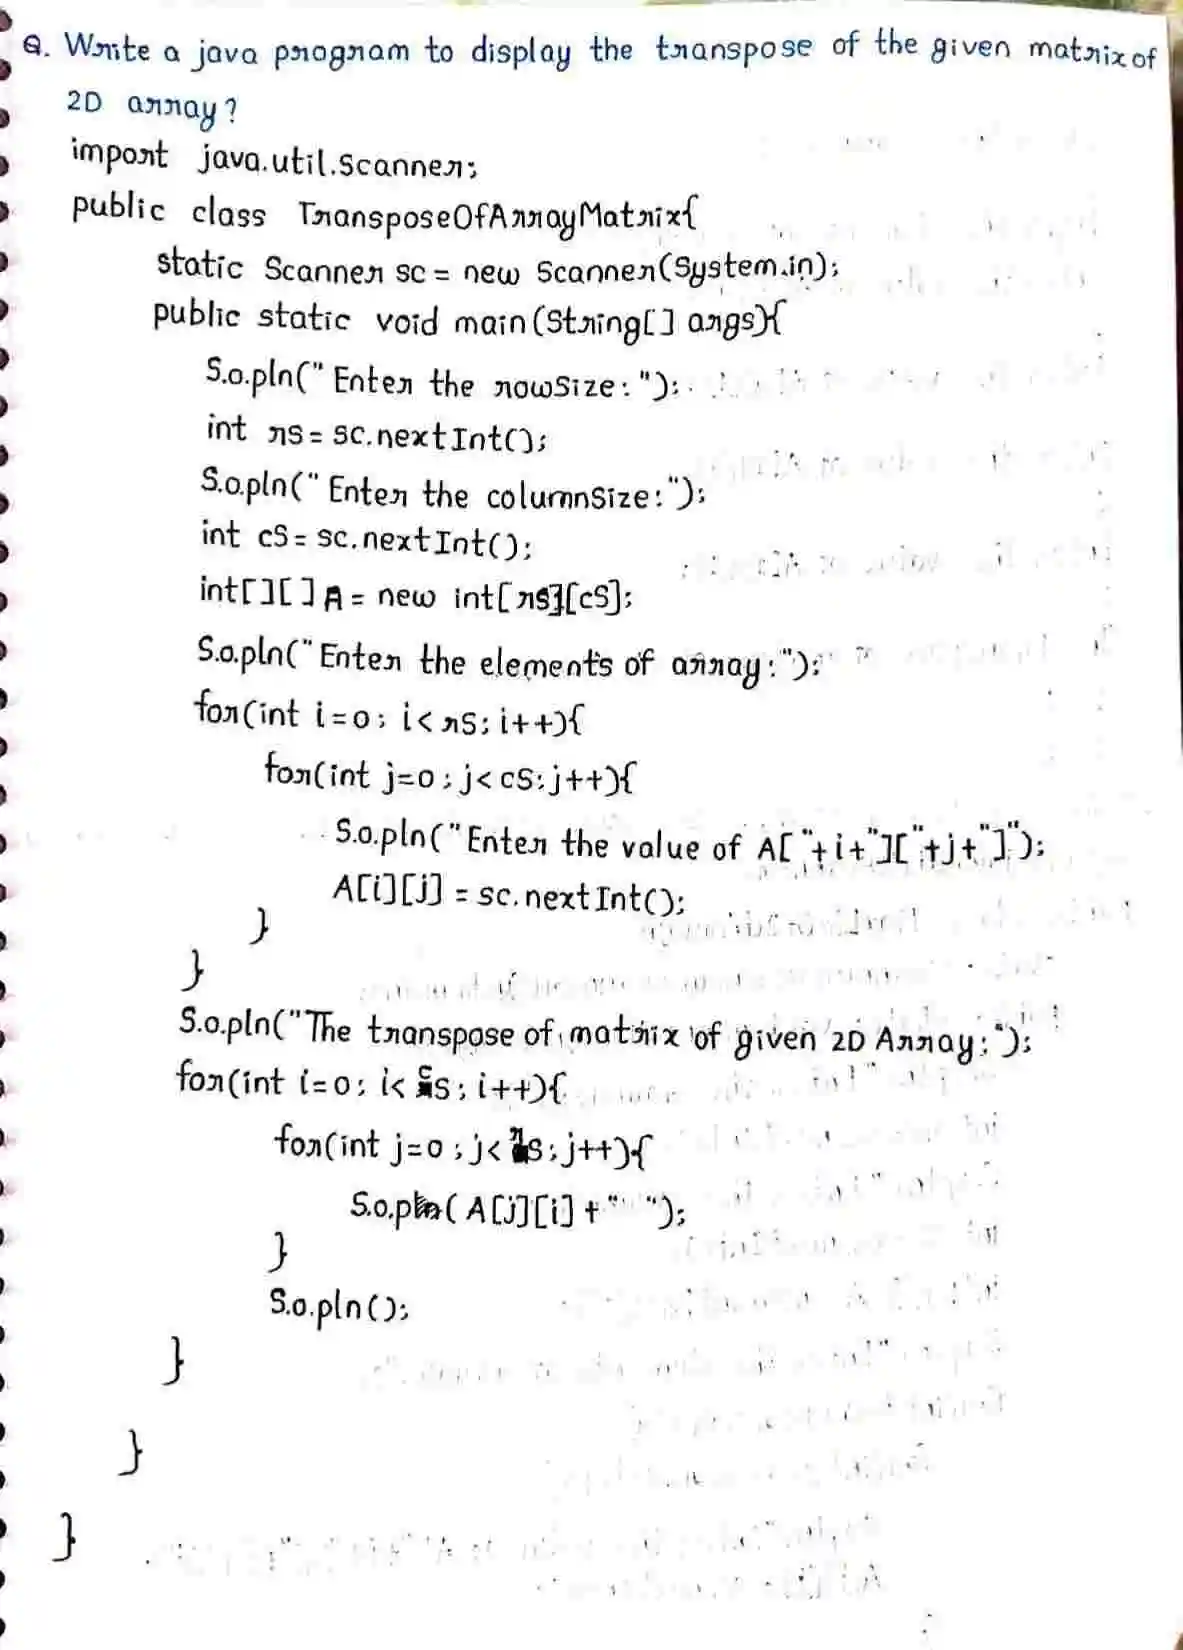 Q. Write a java program to display the transpose of the given matrix of
2D array?
import java.util.Scanner;
public class TransposeOfArrayMatrix{
static Scanner sc = new Scanner(System.in);
public static void main(String[] args){
S.o.pln("Enter the rowSize:");
int rs = sc.nextInt();
S.o.pln("Enter the columnSize:");
int cS = sc.nextInt();
int[][] A = new int[rs][cS];
S.o.pln("Enter the elements of array:");
for(int i=0; i< rS; i++){
for(int j=0; j< cS; j++){
S.o.pln("Enter the value of A["+i+"]["+j+"]");
A[i][j] = sc.nextInt();
}
}
S.o.pln("The transpose of matrix of given 2D Array:");
for(int i=0; i< cS; i++){
for(int j=0; j< rS; j++){
S.o.p(A[j][i] + " ");
}
S.o.pln();
}
}
}